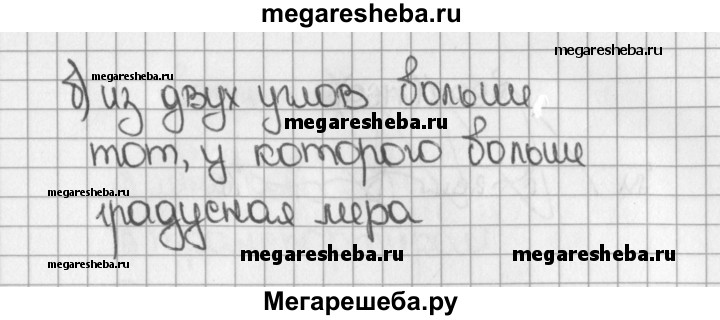 megaresheba.ru
megaresheba.ru
megaresheba.ru
б) из двух углов больше
megaresheba.ru
тот, у которого больше
megaresheba.ru
градусная мера
megaresheba.ru
megaresheba.ru
megaresheba.ru
Мегарешеба.ру